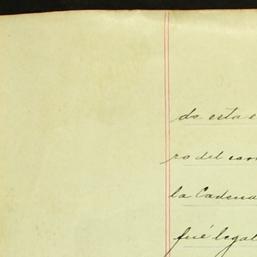 do esta e
ro del con
la Cadena
fué legal